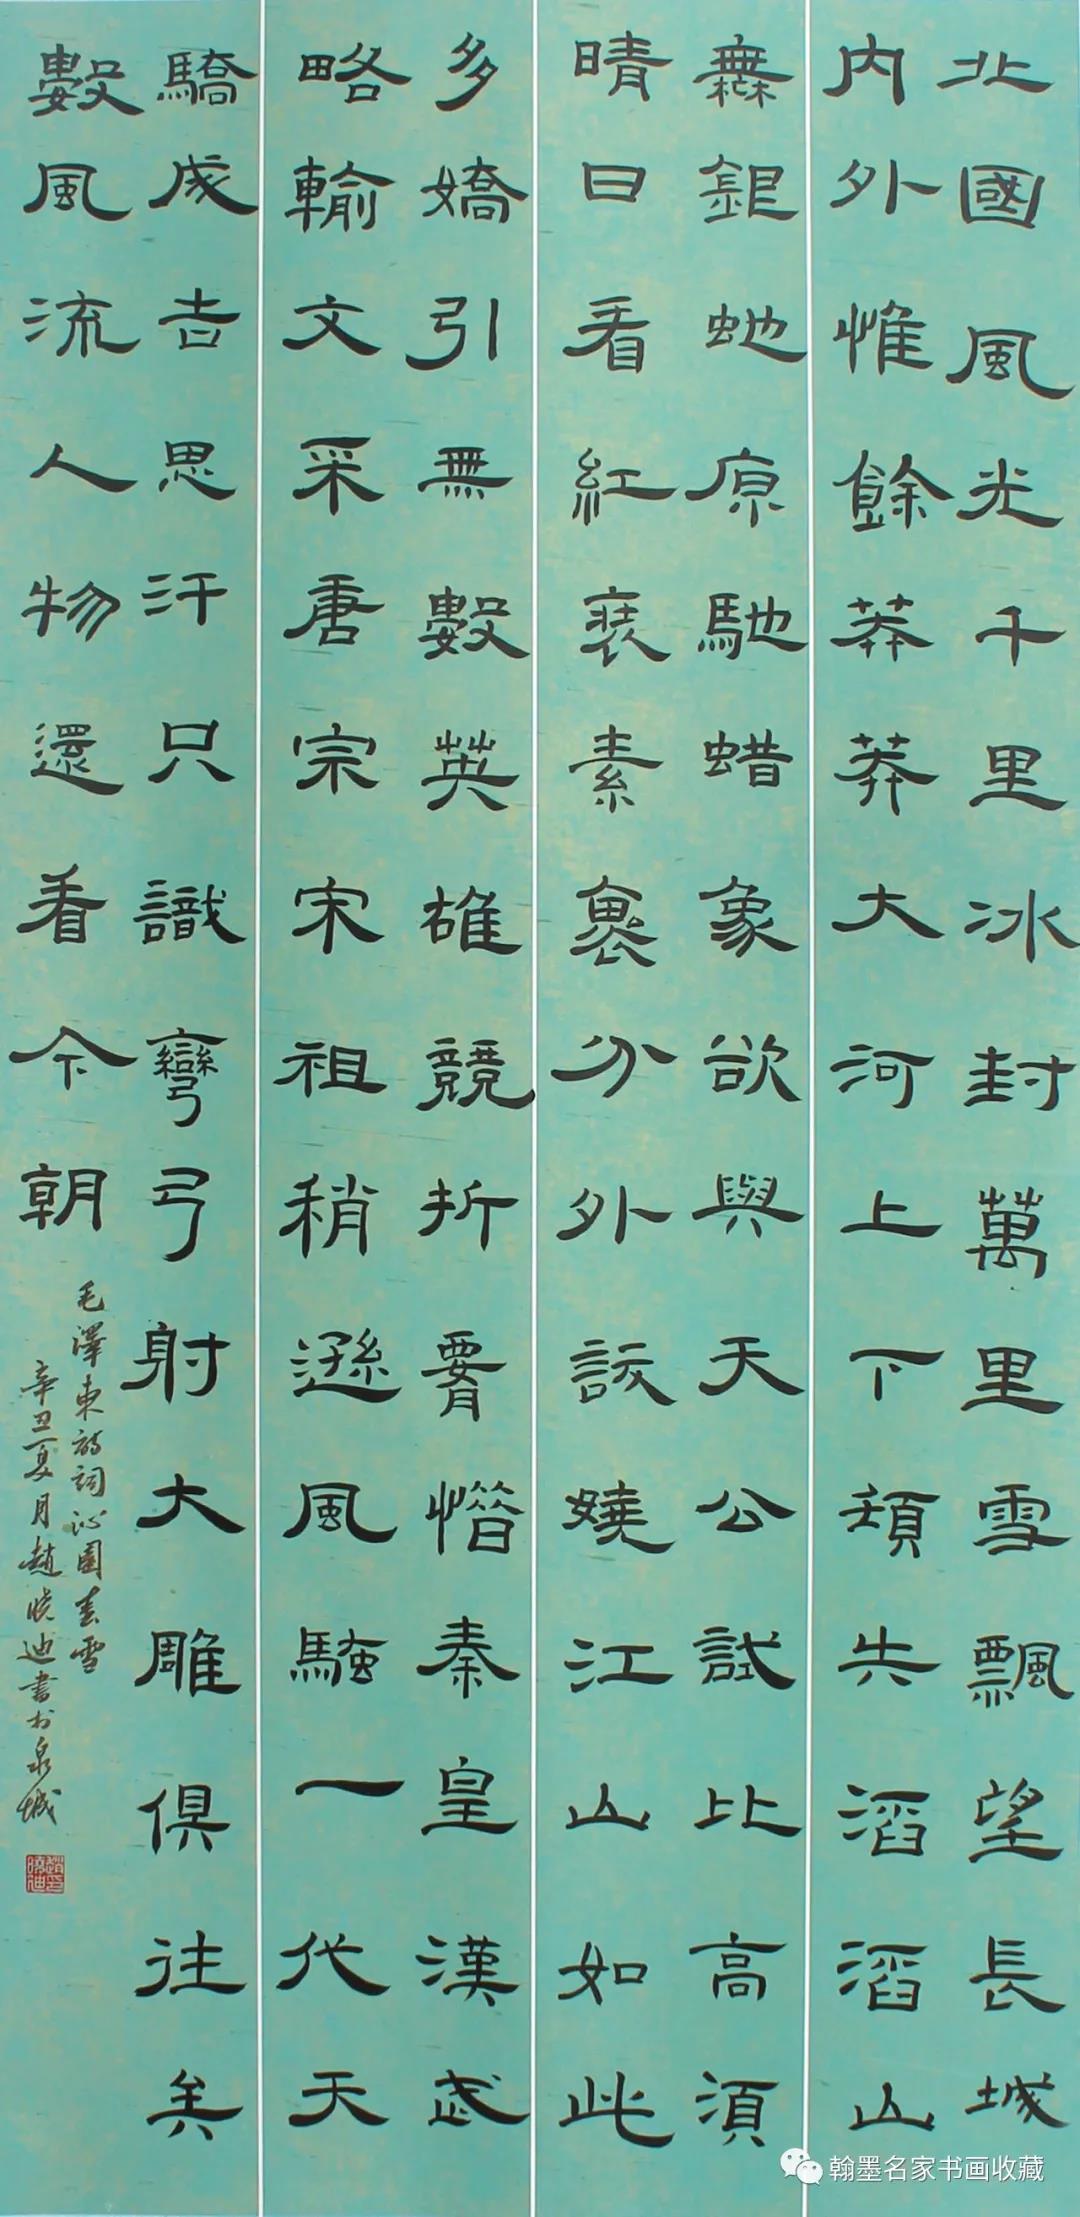 北國風光千里冰封萬里雪飄望長城
内外惟餘莽莽大河上下頓失滔滔山
舞銀蛇原馳蜡象欲與天公試比高須
晴日看紅裝素裹分外訞嬈江山如此
多嬌引無數英雄競折要惜秦皇漢武
略輸文采唐宗宋祖稍遜風騷一代天
驕成吉思汗只識彎弓射大雕俱往矣
數風流人物還看今朝
毛澤東詩詞沁園春雪
辛丑夏月趙曉迪書於泉城
趙曉迪印
翰墨名家书画收藏